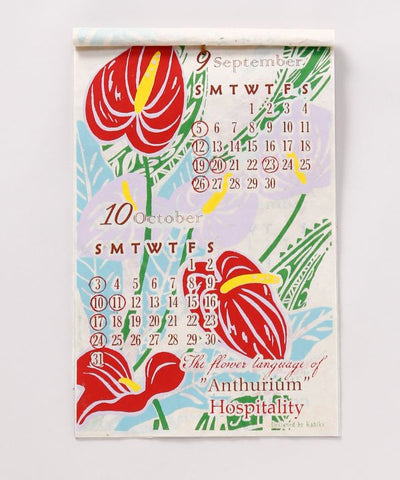 9 September
S M T W T F S
1 2 3 4
5 6 7 8 9 10 11
12 13 14 15 16 17 18
19 20 21 22 23 24 25
26 27 28 29 30
10 October
S M T W T F S
1 2
3 4 5 6 7 8 9
10 11 12 13 14 15 16
17 18 19 20 21 22 23
24 25 26 27 28 29 30
31
The flower language of
"Anthurium"
Hospitality
Designed by